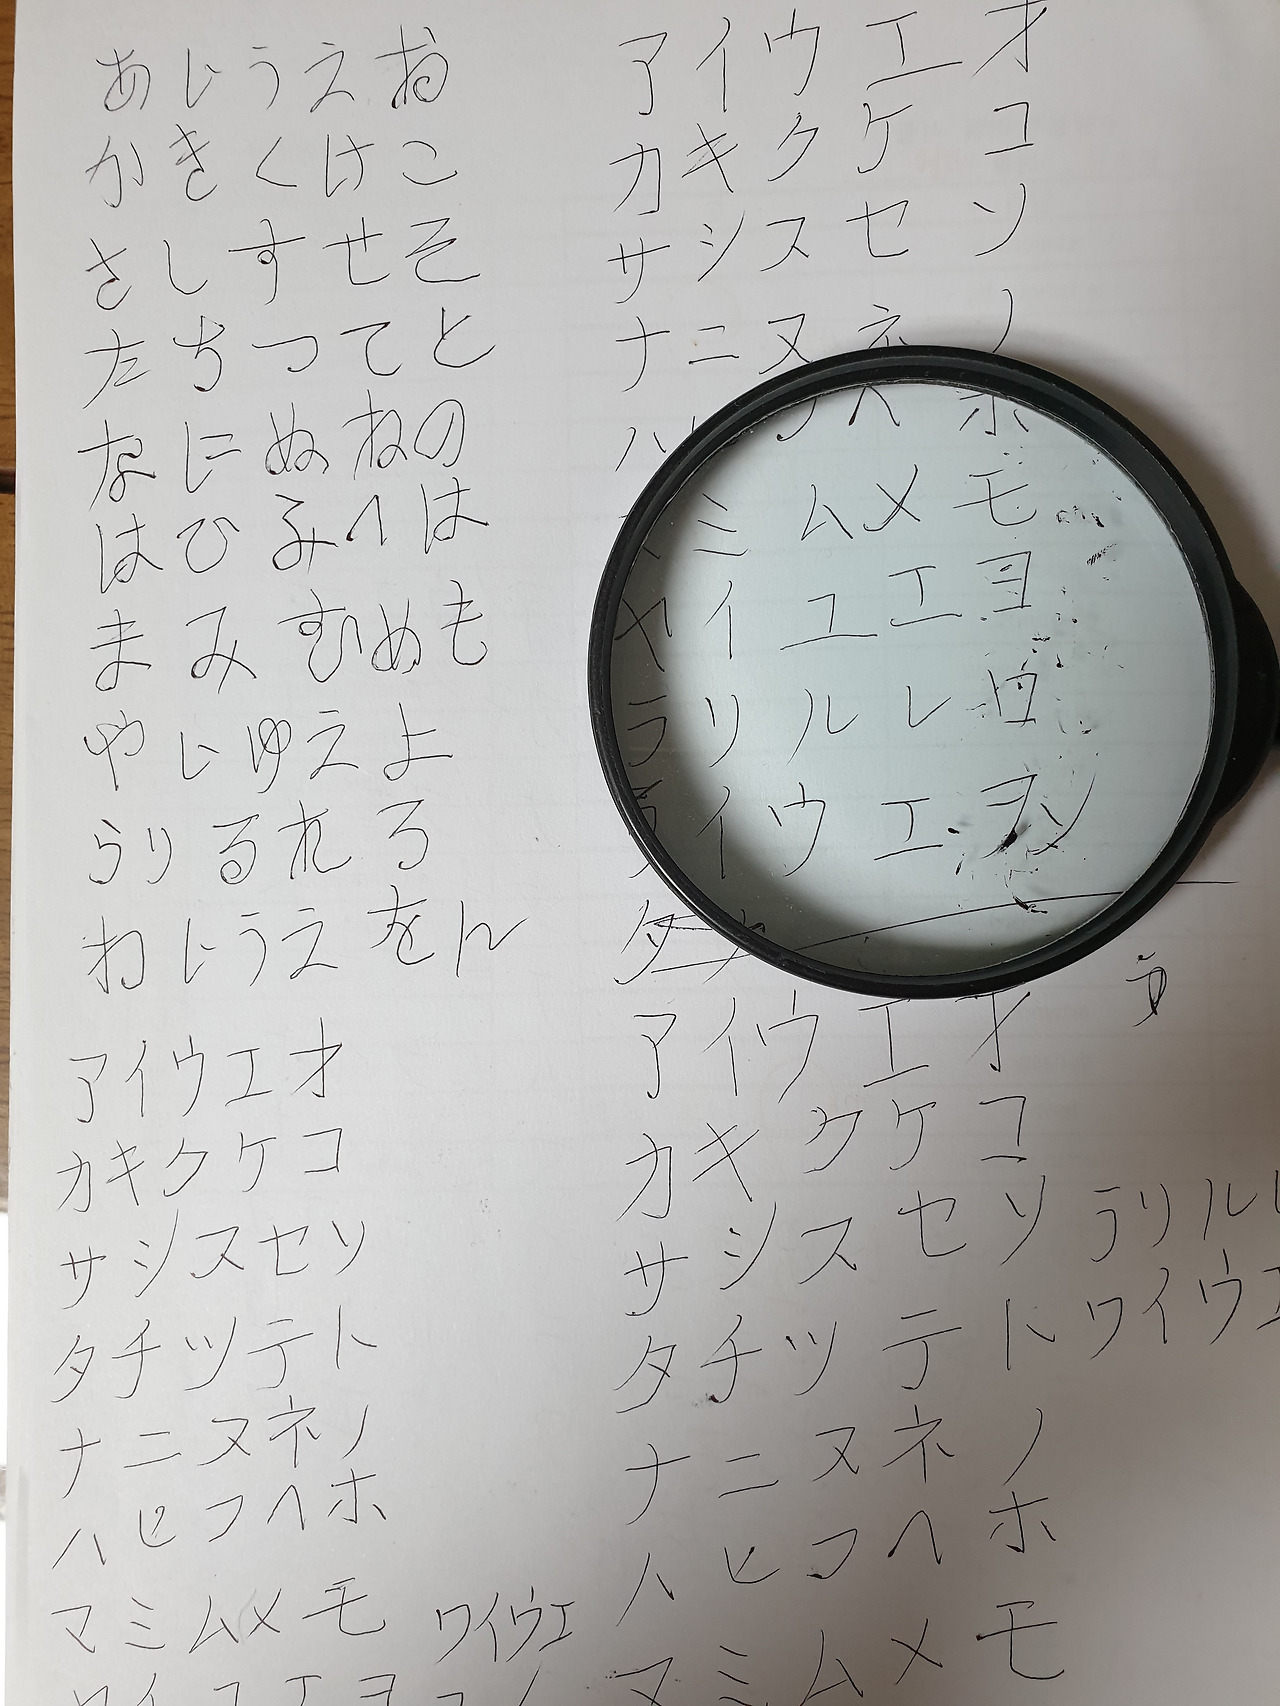 あいうえお
かきくけこ
さしすせそ
たちつてと
なにぬねの
はひふへほ
まみむめも
やいゆえよ
らりるれろ
わいうえをん
アイウエオ
カキクケコ
サシスセソ
タチツテト
ナニヌネノ
ハヒフヘホ
マミムメモ
ワイウエ
アイウエオ
カキクケコ
サシスセソ
ナニヌネノ
ハ フヘホ
ミムメモ
ヤイユエヨ
ラリルレロ
イウエヲン
アイウエオ
カキクケコ
サシスセソ
ラリルレ
タチツテト
ワイウエ
ナニヌネノ
ハヒフヘホ
マミムメモ